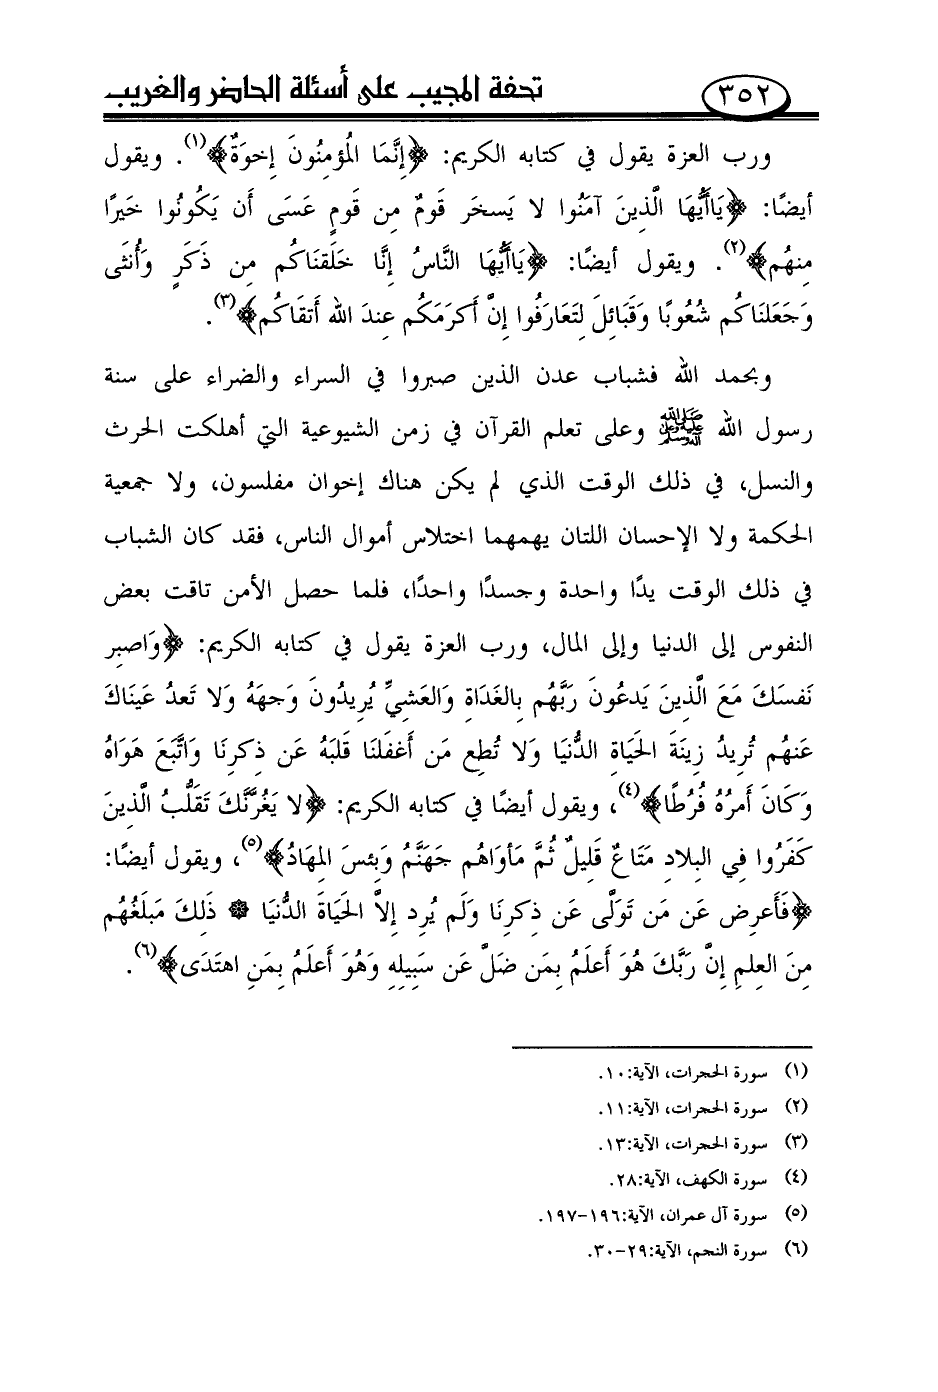 ٣٥٢ تحفة المجيب على أسئلة الحاضر والغريب
ورب العزة يقول في كتابه الكريم: ﴿إِنَّمَا الْمُؤمِنُونَ إِخوَةٌ﴾(١). ويقول
أيضًا: ﴿يَاأَيُّهَا الَّذِينَ آمَنُوا لا يَسخَر قَومٌ مِن قَومٍ عَسَى أَن يَكُونُوا خَيرًا
مِنهُم﴾(٢). ويقول أيضًا: ﴿يَاأَيُّهَا النَّاسُ إِنَّا خَلَقنَاكُم مِن ذَكَرٍ وَأُنثَى
وَجَعَلنَاكُم شُعُوبًا وَقَبَائِلَ لِتَعَارَفُوا إِنَّ أَكرَمَكُم عِندَ الله أَتقَاكُم﴾(٣).
وبحمد الله فشباب عدن الذين صبروا في السراء والضراء على سنة
رسول الله ﷺ وعلى تعلم القرآن في زمن الشيوعية التي أهلكت الحرث
والنسل، في ذلك الوقت الذي لم يكن هناك إخوان مفلسون، ولا جمعية
الحكمة ولا الإحسان اللتان يهمهما اختلاس أموال الناس، فقد كان الشباب
في ذلك الوقت يدًا واحدة وجسدًا واحدًا، فلما حصل الأمن تاقت بعض
النفوس إلى الدنيا وإلى المال، ورب العزة يقول في كتابه الكريم: ﴿وَاصبِر
نَفسَكَ مَعَ الَّذِينَ يَدعُونَ رَبَّهُم بِالغَدَاةِ وَالعَشِيِّ يُرِيدُونَ وَجهَهُ وَلا تَعدُ عَينَاكَ
عَنهُم تُرِيدُ زِينَةَ الحَيَاةِ الدُّنيَا وَلا تُطِع مَن أَغفَلنَا قَلبَهُ عَن ذِكرِنَا وَاتَّبَعَ هَوَاهُ
وَكَانَ أَمرُهُ فُرُطًا﴾(٤)، ويقول أيضًا في كتابه الكريم: ﴿لا يَغُرَّنَّكَ تَقَلُّبُ الَّذِينَ
كَفَرُوا فِي البِلادِ مَتَاعٌ قَلِيلٌ ثُمَّ مَأوَاهُم جَهَنَّمُ وَبِئسَ المِهَادُ﴾(٥)، ويقول أيضًا:
﴿فَأَعرِض عَن مَن تَوَلَّى عَن ذِكرِنَا وَلَم يُرِد إِلاَّ الحَيَاةَ الدُّنيَا ۞ ذَلِكَ مَبلَغُهُم
مِنَ العِلمِ إِنَّ رَبَّكَ هُوَ أَعلَمُ بِمَن ضَلَّ عَن سَبِيلِهِ وَهُوَ أَعلَمُ بِمَنِ اهتَدَى﴾(٦).
(١) سورة الحجرات، الآية:١٠.
(٢) سورة الحجرات، الآية:١١.
(٣) سورة الحجرات، الآية:١٣.
(٤) سورة الكهف، الآية:٢٨.
(٥) سورة آل عمران، الآية:١٩٦-١٩٧.
(٦) سورة النجم، الآية:٢٩-٣٠.